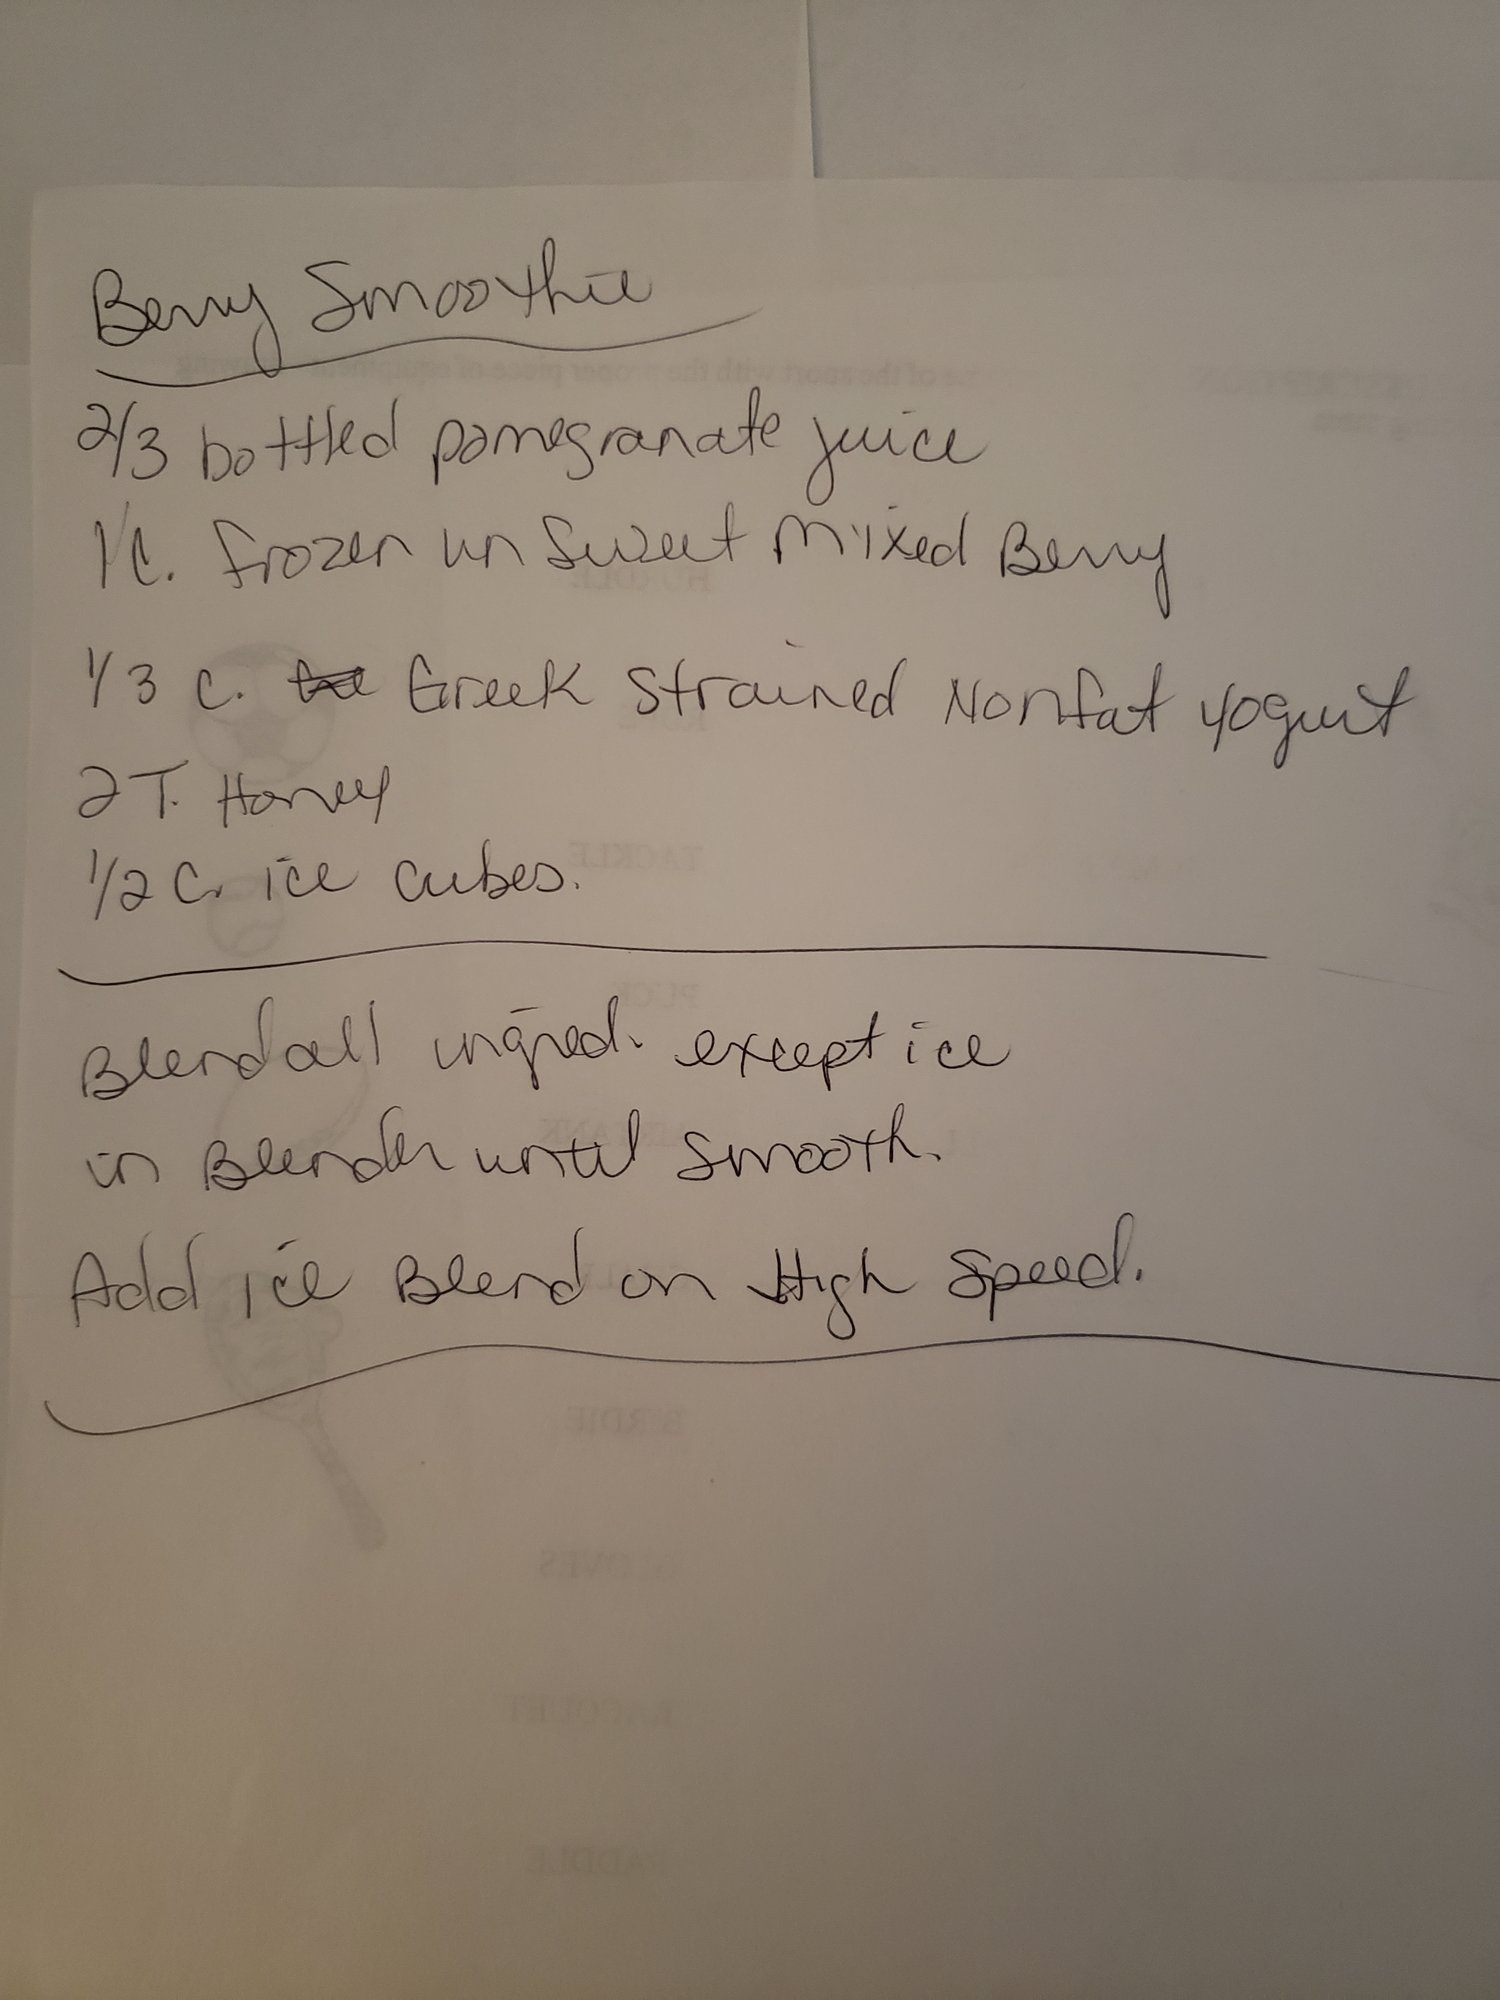 Berry Smoothie
2/3 bottled pomegranate juice
1 C. frozen un Sweet Mixed Berry
1/3 c. Greek Strained Nonfat Yogurt
2 T. Honey
1/2 C. ice cubes.
Blend all ingred. except ice
in Blender until smooth.
Add ice Blend on High Speed.
HURDLE
TACKLE
PUCK
BIRDIE
GLOVES